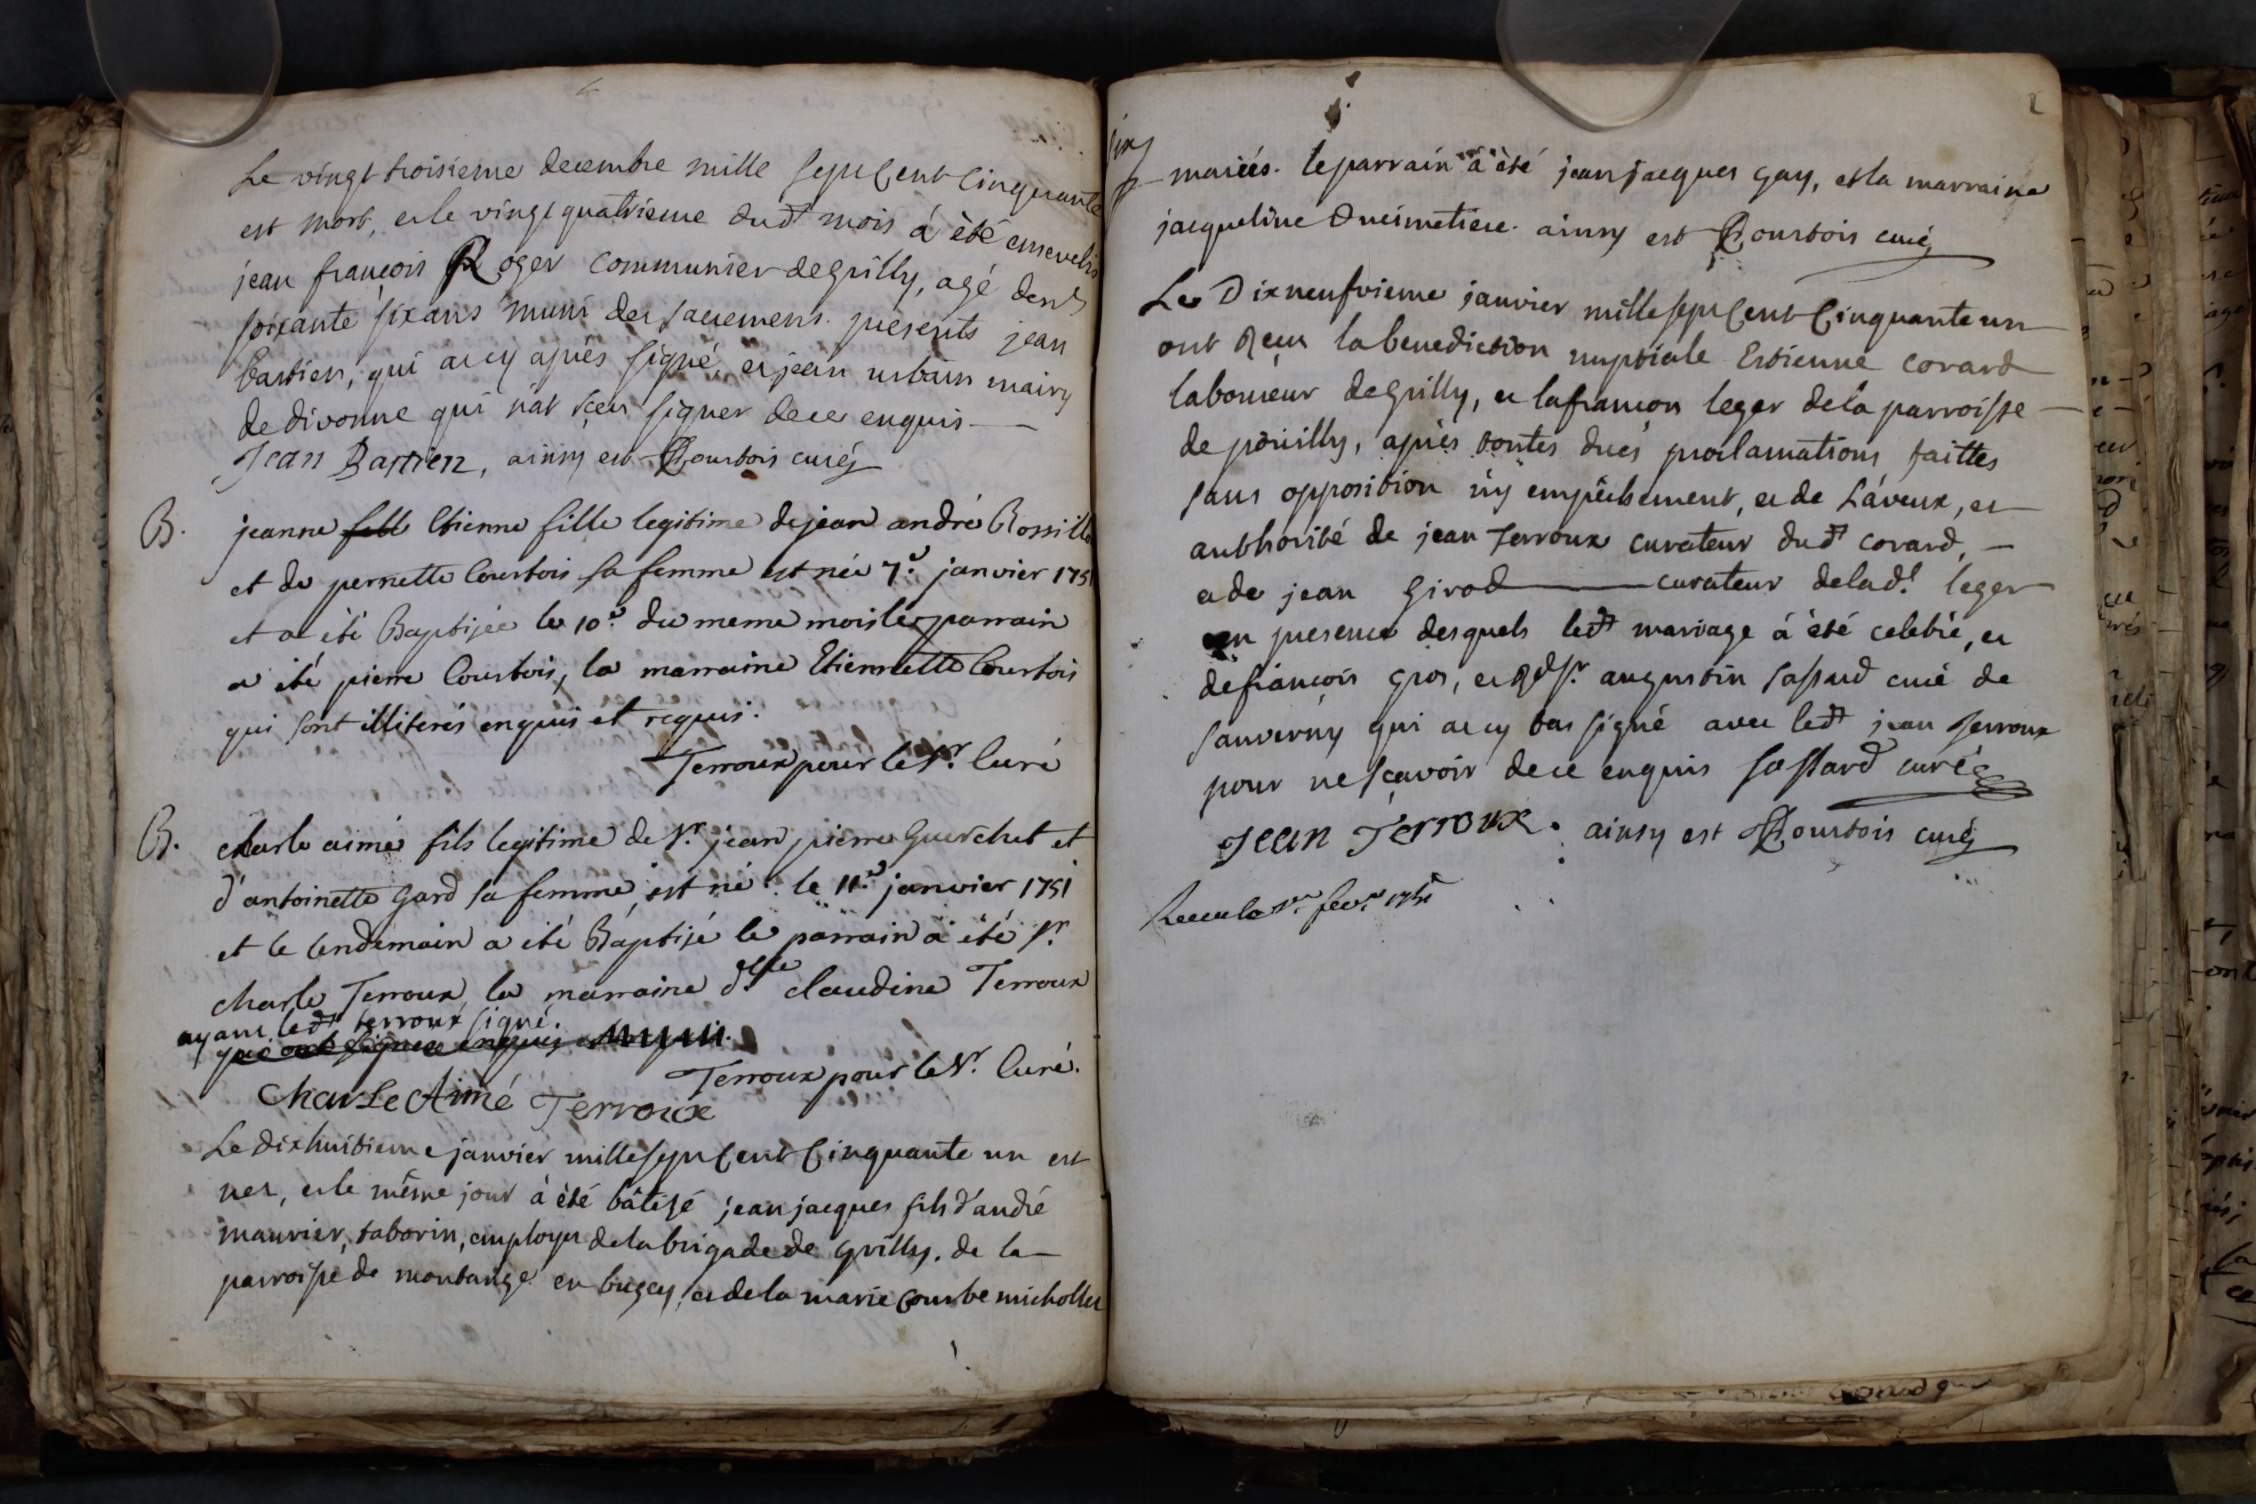 Le vingt troisieme decembre mille sept cent cinquante
est mort, et le vingt quatrieme dudt mois á èté enseveli
jean françois Roger communier de grilly, agé denv
soixante six ans muni des sacremens. presents jean
bastien, qui a cy apriés signé, et jean urbain mairy
de divonne qui n'at sçeu signer de ce enquis
Jean Bastien, ainsy est Courtois curé
B. jeanne fill Etienne fille legitime de jean andré Rossill
et de pernette Courtois sa femme est née 7e. janvier 1751
et a été Baptisée le 10e. du meme mois le parrain
a été pierre Courtois, la marraine Etiennette Courtois
qui sont illiterés enquis et requis.
Terroux pour le Sr. Curé
B. charle aimé fils legitime de Sr. jean pierre Guerchet et
d'antoinette Gard sa femme, est né le 11e. janvier 1751
et le lendemain a été Baptisé le parrain a été Sr.
charle Terroux, la marraine dlle claudine Terroux
ayant ledt terroux signé.
qui ont signé enquis
Terroux pour le Sr. Curé.
CharLe Aimé Terroux
Le dixhuitieme janvier mille sept cent cinquante un est
nez, et le même jour á èté bâtisé jean jacques fils d'andré
maurier, taborin, employez de la brigade de grilly. de la
parroisse de montange en bugey, et de la marie Courbe micholles
2
mariés. le parrain á èté jean jacques gay, et la marraine
jacqueline Ducimetiere. ainsy est Courtois curé
Le Dixneufvieme janvier mille sept cent cinquante un
ont reçeu la benediction nuptiale Estienne covard
laboureur de grilly, et la françon leger de la parroisse
de poüilly, apriès toutes duës proclamations faittes
sans opposition ny empêchement, et de L'áveux, et
authorité de jean Terroux curateur dudt covard,
et de jean Girod curateur de ladt. leger
en presence desquels ledt mariage á èté celebré, et
de françois gros, et Rd Sr. augustin sassard curé de
sauverny qui a cy bas signé avec ledt jean Terroux
pour ne sçavoir de ce enquis Sassard curé
Jean Terroux. ainsy est Courtois curé